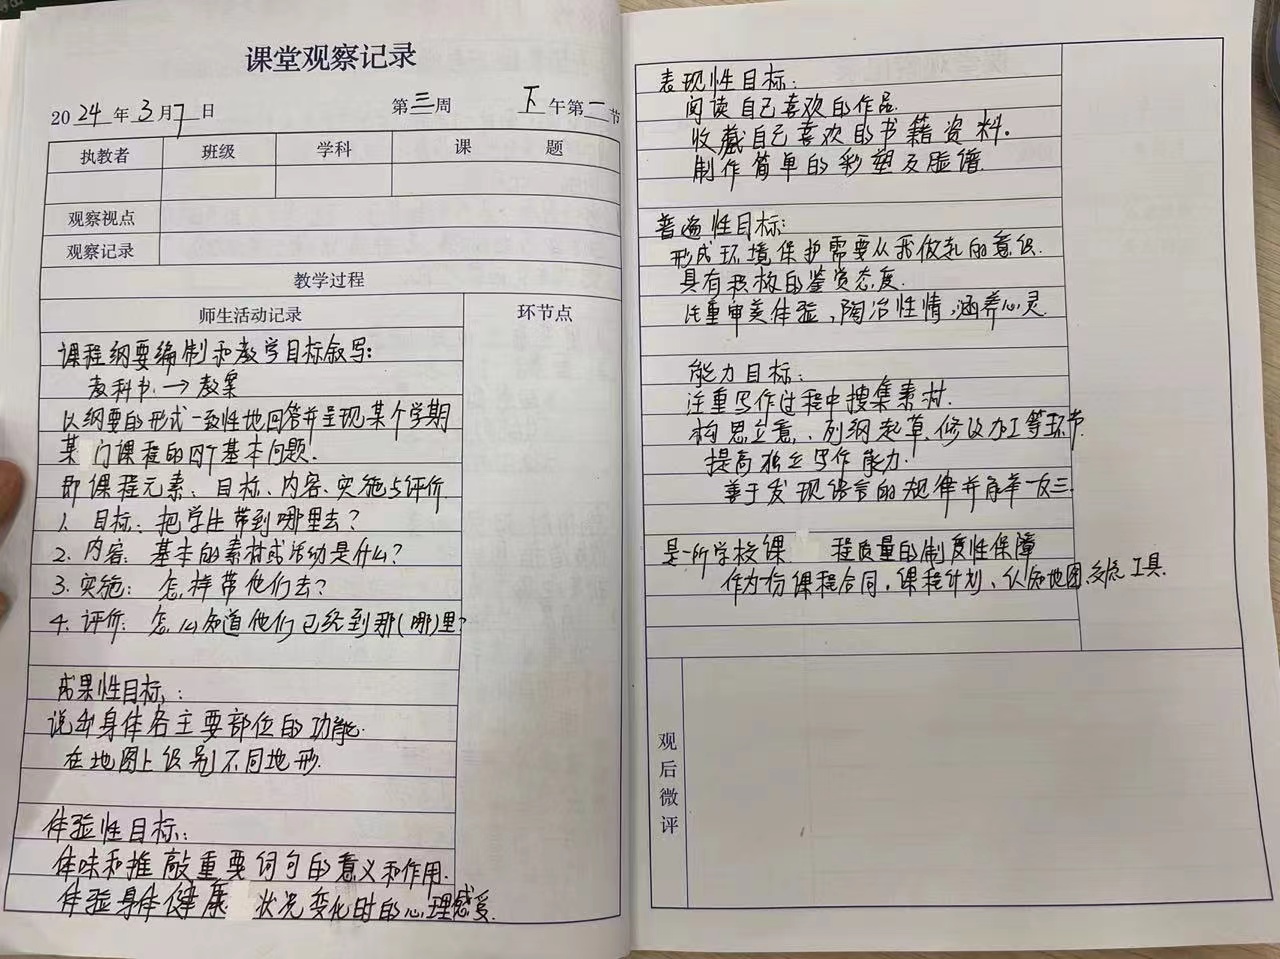 课堂观察记录
2024年3月7日 第三周 下午第一节
执教者 班级 学科 课题
观察视点
观察记录
教学过程
师生活动记录 环节点
课程纲要编制和教学目标叙写:
教科书→教案
以纲要的形式一致性地回答并呈现某个学期
某门课程的四个基本问题.
即课程元素、目标、内容、实施与评价
1. 目标: 把学生带到哪里去?
2. 内容: 基本的素材或活动是什么?
3. 实施: 怎样带他们去?
4. 评价: 怎么知道他们已经到那(哪)里?
成果性目标:
说出身体各主要部位的功能.
在地图上识别不同地形.
体验性目标:
体味和推敲重要词句的意义和作用.
体验身体健康 状况变化时的心理感受.
表现性目标:
阅读自己喜欢的作品.
收藏自己喜欢的书籍资料.
制作简单的彩塑及脸谱.
普遍性目标:
形成环境保护需要从我做起的意识.
具有积极的鉴赏态度.
注重审美体验,陶冶性情,涵养心灵
能力目标:
注重写作过程中搜集素材.
构思立意、列纲起草、修改加工等环节
提高独立写作能力.
善于发现语言的规律并能举一反三.
是一所学校课 程质量的制度性保障
作为一份课程合同、课程计划、认知地图、交流工具.
观后微评